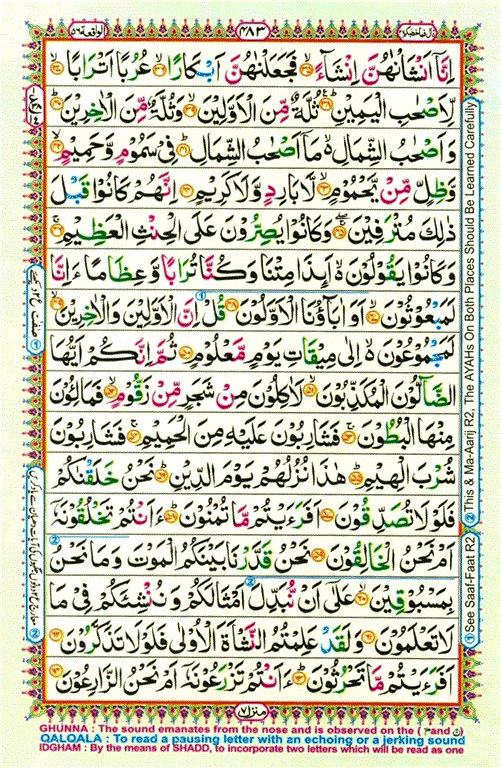 قال فما خطبكم ٢٧ ٤٨٣ الواقعة ٥٦
اِنَّاۤ اَنْشَاْنٰهُنَّ اِنْشَآءً فَجَعَلْنٰهُنَّ اَبْكَارًا عُرُبًا اَتْرَابًا
لِّاَصْحٰبِ الْيَمِيْنِ ثُلَّةٌ مِّنَ الْاَوَّلِيْنَ وَثُلَّةٌ مِّنَ الْاٰخِرِيْنَ
وَاَصْحٰبُ الشِّمَالِ مَاۤ اَصْحٰبُ الشِّمَالِ فِيْ سَمُوْمٍ وَّحَمِيْمٍ
وَّظِلٍّ مِّنْ يَّحْمُوْمٍ لَّا بَارِدٍ وَّلَا كَرِيْمٍ اِنَّهُمْ كَانُوْا قَبْلَ
ذٰلِكَ مُتْرَفِيْنَ وَكَانُوْا يُصِرُّوْنَ عَلَى الْحِنْثِ الْعَظِيْمِ
وَكَانُوْا يَقُوْلُوْنَ اَئِذَا مِتْنَا وَكُنَّا تُرَابًا وَّعِظَامًا ءَاِنَّا
لَمَبْعُوْثُوْنَ اَوَاٰبَآؤُنَا الْاَوَّلُوْنَ قُلْ اِنَّ الْاَوَّلِيْنَ وَالْاٰخِرِيْنَ
لَمَجْمُوْعُوْنَ اِلٰى مِيْقَاتِ يَوْمٍ مَّعْلُوْمٍ ثُمَّ اِنَّكُمْ اَيُّهَا
الضَّآلُّوْنَ الْمُكَذِّبُوْنَ لَاٰكِلُوْنَ مِنْ شَجَرٍ مِّنْ زَقُّوْمٍ فَمَالِـُٔوْنَ
مِنْهَا الْبُطُوْنَ فَشَارِبُوْنَ عَلَيْهِ مِنَ الْحَمِيْمِ فَشَارِبُوْنَ
شُرْبَ الْهِيْمِ هٰذَا نُزُلُهُمْ يَوْمَ الدِّيْنِ نَحْنُ خَلَقْنٰكُمْ
فَلَوْلَا تُصَدِّقُوْنَ اَفَرَءَيْتُمْ مَّا تُمْنُوْنَ ءَاَنْتُمْ تَخْلُقُوْنَهٗۤ
اَمْ نَحْنُ الْخَالِقُوْنَ نَحْنُ قَدَّرْنَا بَيْنَكُمُ الْمَوْتَ وَمَا نَحْنُ
بِمَسْبُوْقِيْنَ عَلٰۤى اَنْ نُّبَدِّلَ اَمْثَالَكُمْ وَنُنْشِئَكُمْ فِيْ مَا
لَا تَعْلَمُوْنَ وَلَقَدْ عَلِمْتُمُ النَّشْاَةَ الْاُوْلٰى فَلَوْلَا تَذَكَّرُوْنَ
اَفَرَءَيْتُمْ مَّا تَحْرُثُوْنَ ءَاَنْتُمْ تَزْرَعُوْنَهٗۤ اَمْ نَحْنُ الزَّارِعُوْنَ
منزل ٧
② This & Ma-Aarij R2, The AYAHs On Both Places Should Be Learned Carefully
① See Saaf-Faat R2
GHUNNA : The sound emanates from the nose and is observed on the ( م and ن )
QALQALA : To read a pausing letter with an echoing or a jerking sound
IDGHAM : By the means of SHADD, to incorporate two letters which will be read as one